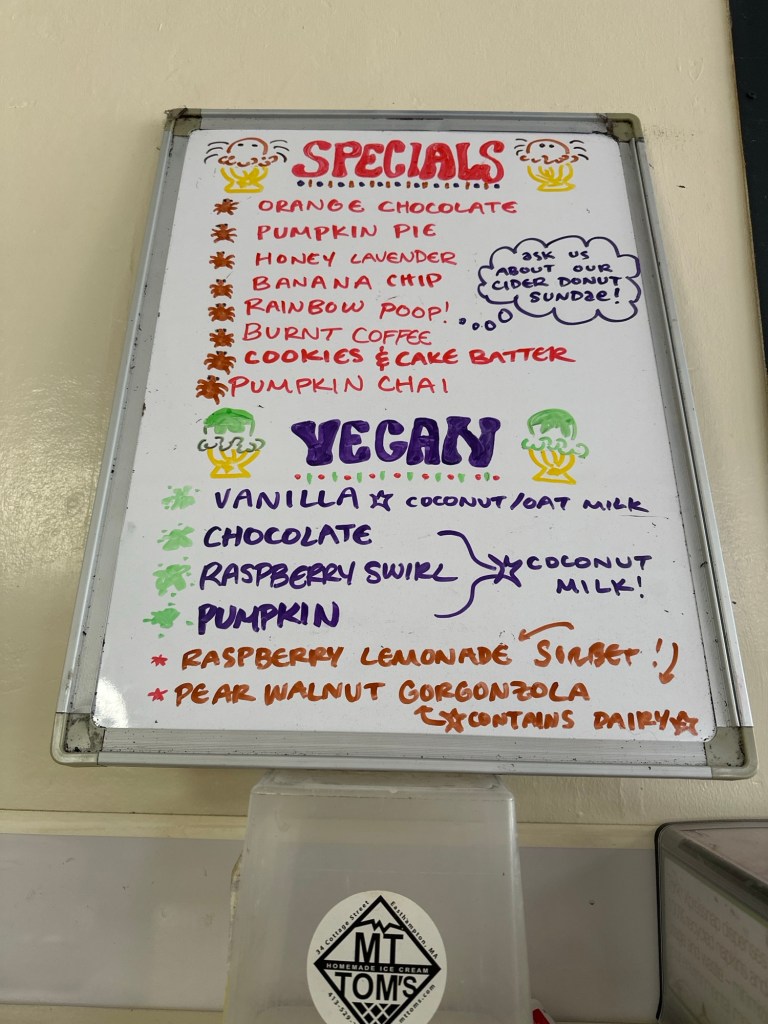 SPECIALS
ORANGE CHOCOLATE
PUMPKIN PIE
HONEY LAVENDER
BANANA CHIP
RAINBOW POOP!
BURNT COFFEE
COOKIES & CAKE BATTER
PUMPKIN CHAI
ask us
ABOUT OUR
CIDER DONUT
SUNDae!
VEGAN
VANILLA ☆ COCONUT/OAT MILK
CHOCOLATE
RASPBERRY SWIRL
PUMPKIN
☆ COCONUT
MILK!
* RASPBERRY LEMONADE SORBET!
* PEAR WALNUT GORGONZOLA
☆CONTAINS DAIRY☆
34 Cottage Street
Easthampton, MA
MT
HOMEMADE ICE CREAM
TOM'S
mttoms.com